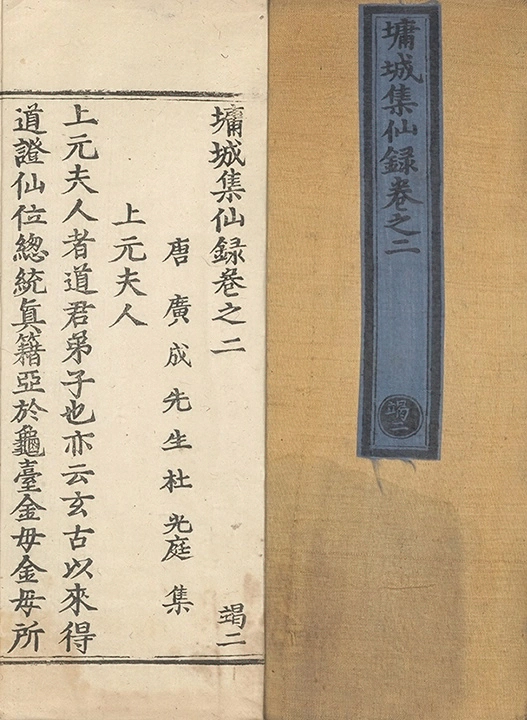 墉城集仙録卷之二
竭二
墉城集仙録卷之二　竭二
唐廣成先生杜光庭集
上元夫人
上元夫人者道君弟子也亦云玄古以來得
道證仙位總統真籍亞於龜臺金母金母所